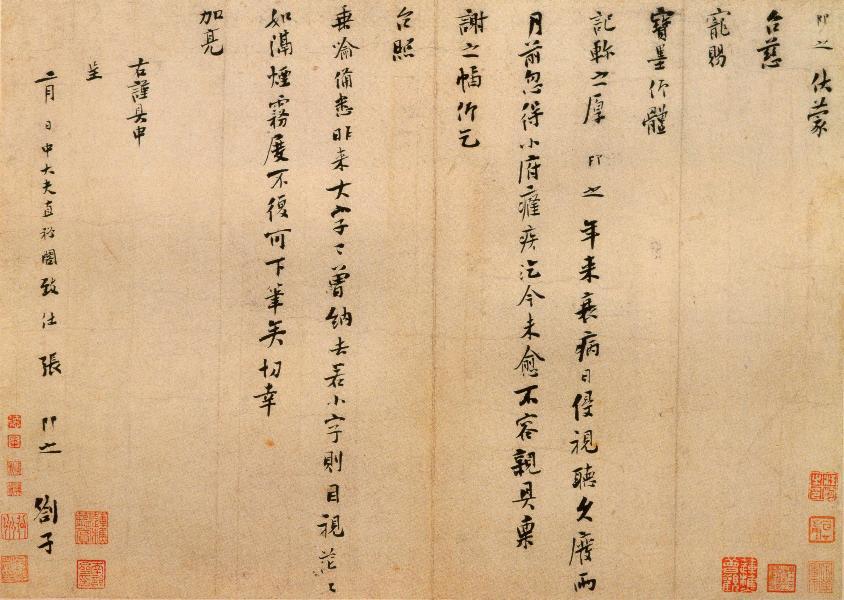 即之 伏蒙
台慈
寵賜
寶墨仰體
記軫之厚 即之 年來衰病日侵視聽久廢兩
月前忽得小府癰疾迄今未愈不容親具稟
謝之幅仰乞
台照
垂喻備悉昨來大字已曾納去若小字則目視茫々
如隔煙霧屢不復可下筆矣切幸
加亮
右謹具申
呈
二月 日中大夫直祕閣致仕 張 即之 劄子